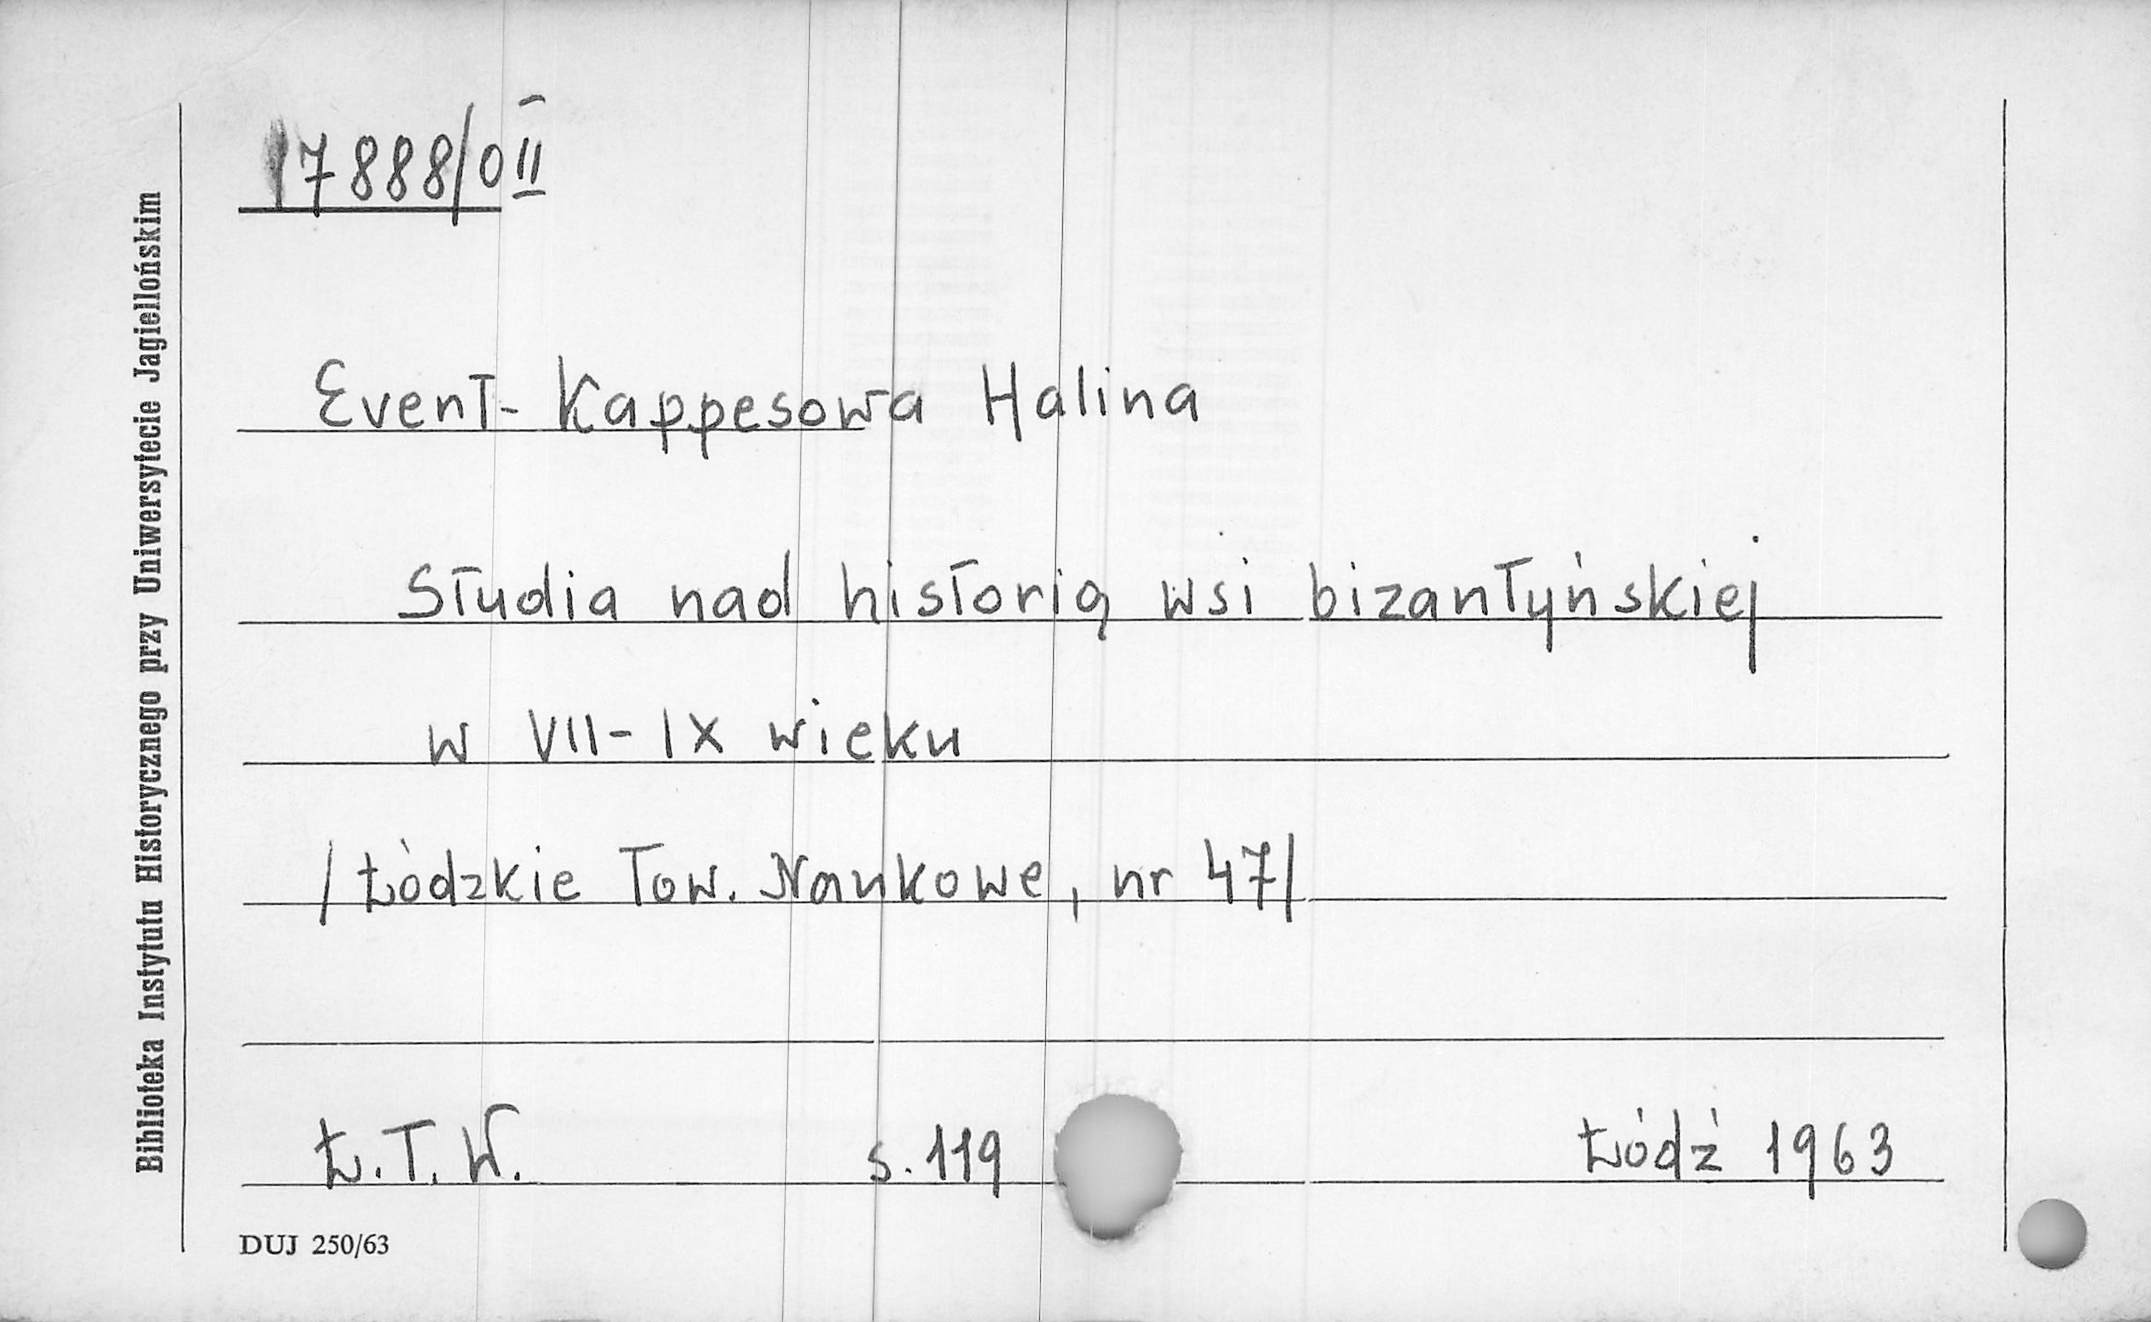 17888/0 II
Event-Kappesowa Halina
Studia nad historią wsi bizantyńskiej
w VII-IX wieku
/Łódzkie Tow. Naukowe, nr 47/
Ł.T.W. s. 119 Łódź 1963
DUJ 250/63
Biblioteka Instytutu Historycznego przy Uniwersytecie Jagiellońskim